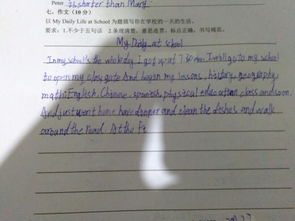 Peter is shorter than Mary.
七、作文（10分）
以 My Daily Life at School 为题描写你在学校的一天的生活。
要求：1.不少于五句话 2.条理清楚，意思连贯，标点正确，书写规范。
My Daily at school
In my school's the whole day. I get up at 7 to I will go to my school
to open my class gate And began my lessons, history, geography
math English, Chinese, spanish, physical education class and soon.
And just went home have dinner and clean the dishes and walk
around the road. At the